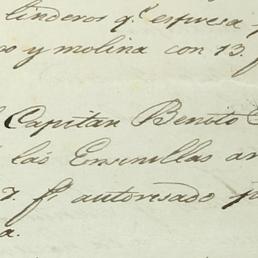 linderos q.e espresa
y molina con 13.
Capitan Benito
las Ensinillas
7. f.s autoresado